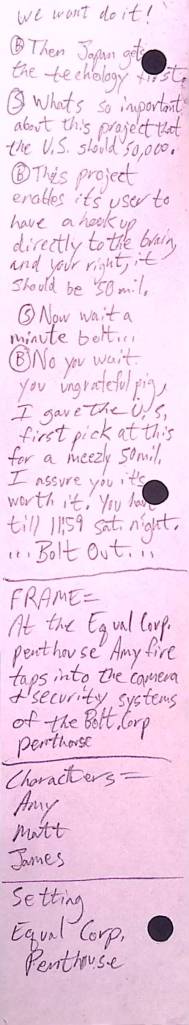 we want do it!
Ⓑ Then Japan gets
the techology first.
Ⓢ Whats so important
about this project that
the U.S. should 50,000.
Ⓑ This project
enables its user to
have a hook up
directly to the brain,
and your right, it
should be 50 mil.
Ⓢ Now wait a
minute bolt...
Ⓑ No you wait
you ungrateful pig,
I gave the U.S.
first pick at this
for a meezly 50 mil.
I assure you it's
worth it. You have
till 11:59 sat. night.
... Bolt Out...
FRAME=
At the Equal Corp.
penthouse Amy fire
taps into the camera
& security systems
of the Bolt Corp
penthouse
Characters=
Amy
Matt
James
Setting
Equal Corp.
Penthouse